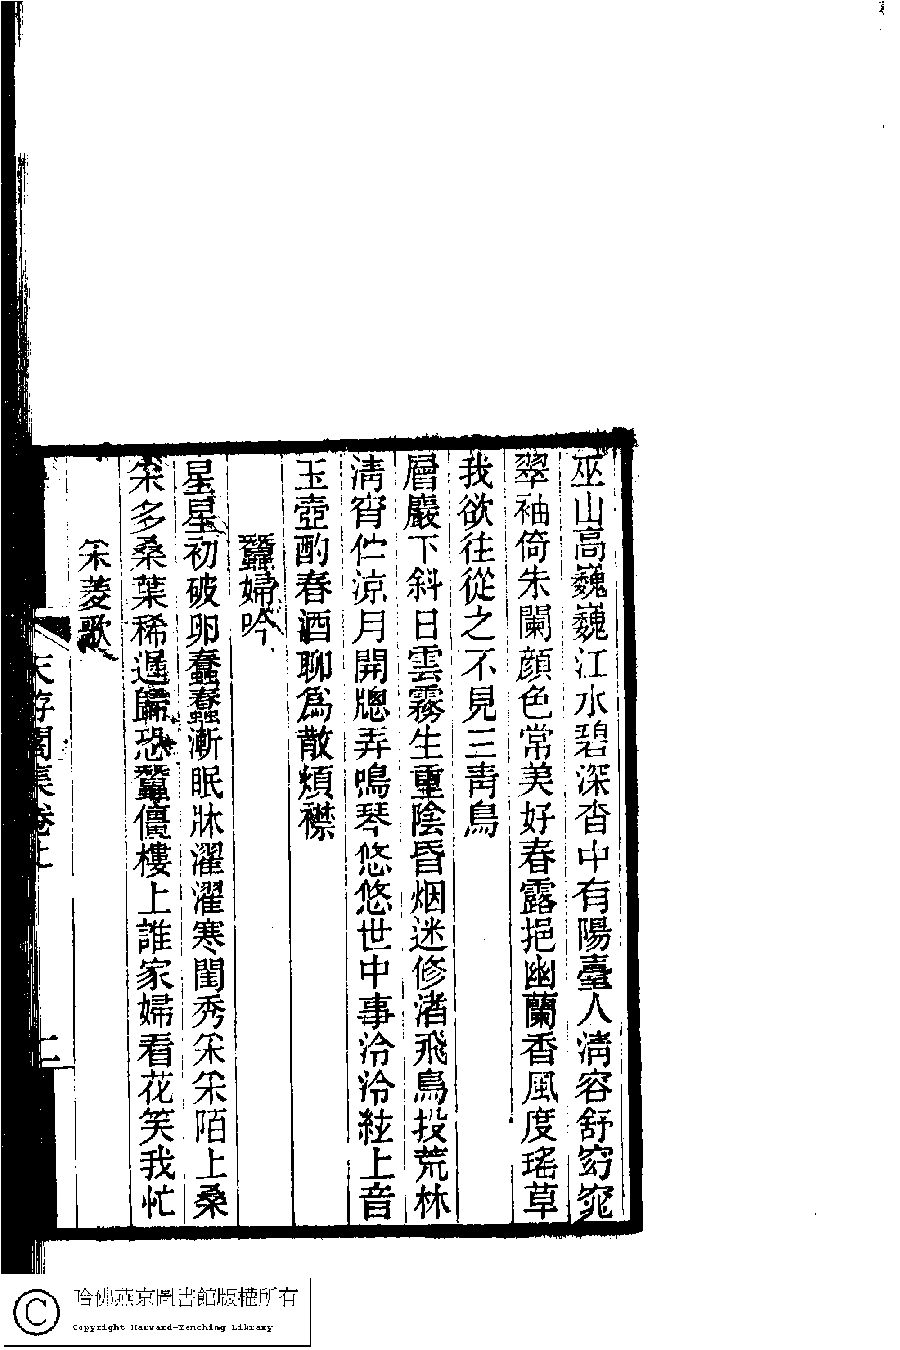 巫山高巍巍江水碧深杳中有陽臺人淸容舒窈窕
翠袖倚朱闌顔色常美好春露挹幽蘭香風度瑤草
我欲往從之不見三靑鳥
層巖下斜日雲霧生重陰昏烟迷修渚飛鳥投荒林
淸宵伫涼月開牕弄鳴琴悠悠世中事泠泠絃上音
玉壺酌春酒聊爲散煩襟
蠶婦吟
星星初破卵蠢蠢漸眠牀濯濯寒閨秀采采陌上桑
采多桑葉稀遲歸恐蠶僵樓上誰家婦看花笑我忙
采菱歌
天游閣集卷上
二
哈佛燕京圖書館版權所有
Copyright Harvard-Yenching Library